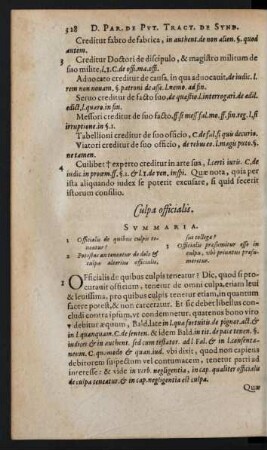 328 D. PAR. DE PVT. TRACT. DE SYND.
Creditur fabro de fabrica, in authent. de non alien. §. quod
autem.
3 Creditur Doctori de discipulo, & magistro militum de
suo milite, l. 3. C. de off. ma. off.
Aduocato creditur de causa, in qua aduocauit, de iudic. l.
rem non nouam. §. patroni de asse. l. nemo. ad fin.
Seruo creditur de facto suo, de quæstio. l. interrogari. de ædil.
edict. l. quæro. in fin.
Messori creditur de suo facto, ff. si mess. fal. mo. ff. fin. reg. l. si
irruptione in §. 1.
Tabellioni creditur de suo officio, C. de fal. si quis decurio.
Viatori creditur de suo officio, de rebus eo. l. magis puto. §.
ne tamen.
4 Cuilibet † experto creditur in arte sua, l. certi iuris. C. de
iudic. in proœm. ff. §. 1. & l. 1. de ven. inspi. Quæ nota, quia per
ista aliquando iudex se poterit excusare, si quid fecerit
istorum consilio.
Culpa officialis.
SVMMARIA.
1 Officialis de quibus culpis te-
neatur?
2 Potestas an teneatur de dolo &
culpa alterius officialis,
sui collega?
3 Officialis præsumitur esse in
culpa, vbi potentius præsu-
meretur.
1 OFficialis de quibus culpis teneatur? Dic, quod si pro-
curauit officium, tenetur de omni culpa, etiam leui
& leuissima, pro quibus culpis tenetur etiam, in quantum
facere potest, & non carceratur. Et sic debet iudex conclu-
di contra ipsum, vt condemnetur, quatenus bono viro
vdebitur æquum, Bald. late in l. qua fortuitis. de pigner. act. &
in l. quanquam. C. de senten. & idem Bald. in tit. de pace tenen. §.
iudices & in authent. sed cum testator. ad l. Fal. & in l. consenta-
neum. C. quomodo & quan. iud. vbi dixit, quod non capiens
debitorem suspectum vel contumacem, tenetur parti ad
interesse: & vide in verb. negligentia, in cap. qualiter officialis
de culpa teneatur. & in cap. negligentia est culpa.
Quæ